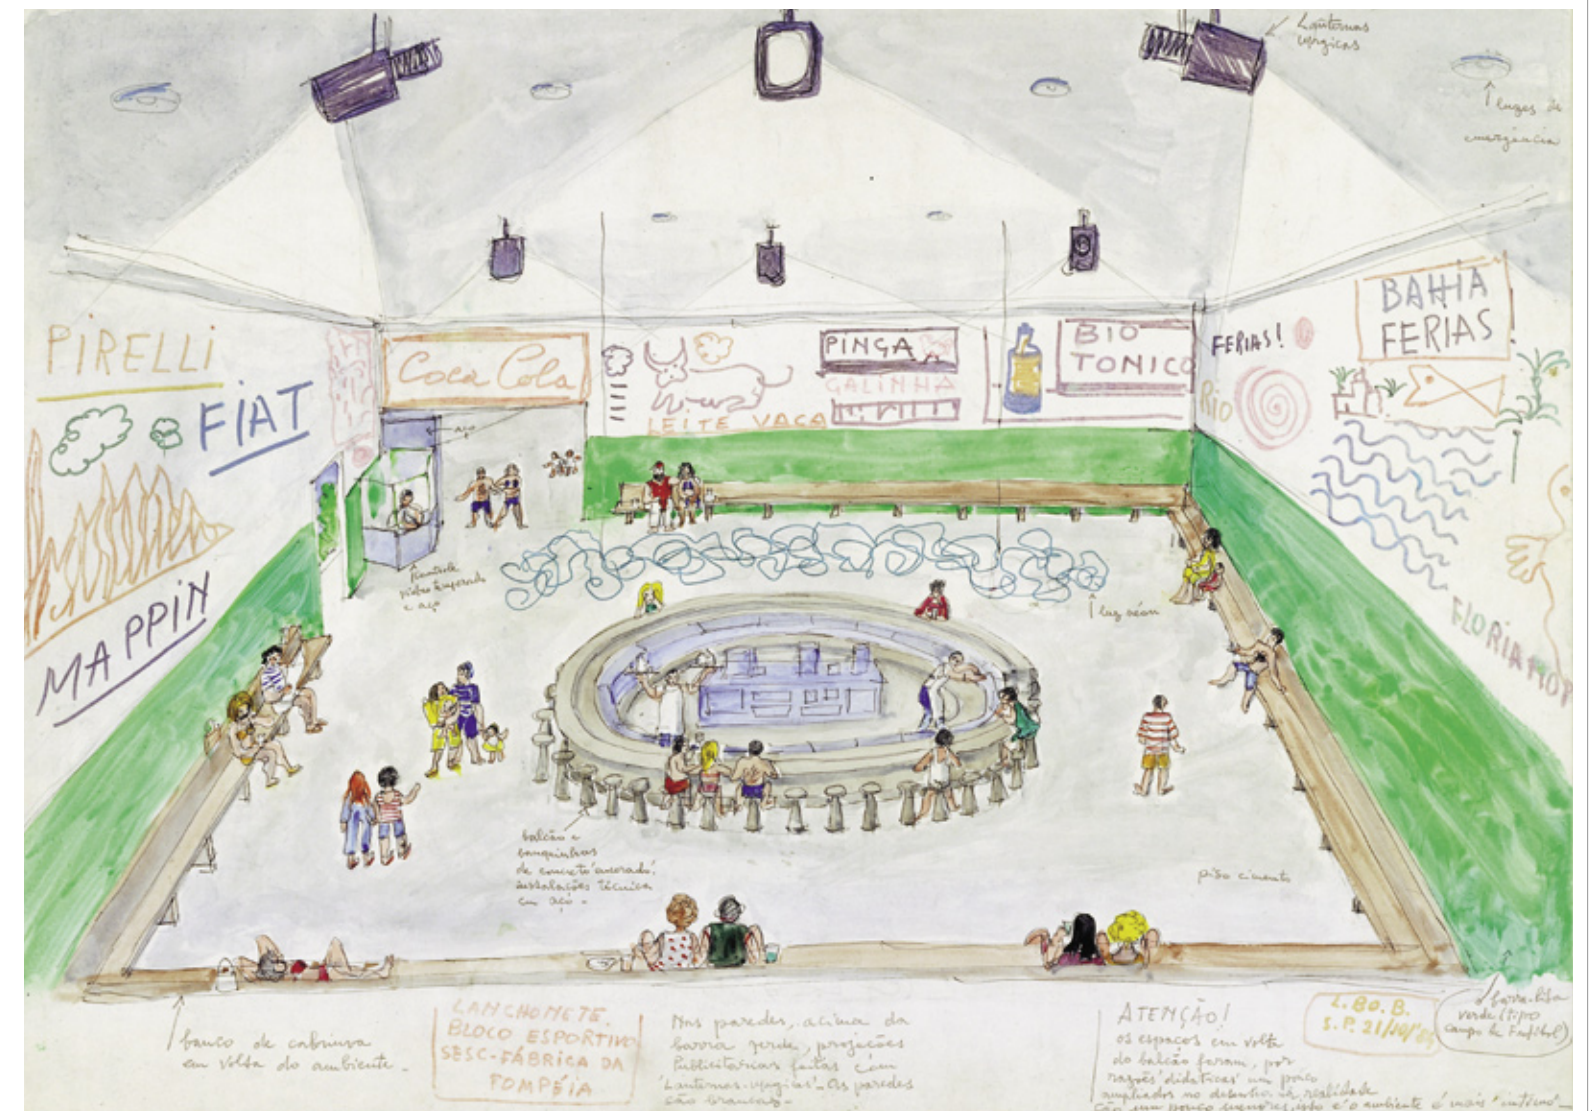 Lanternas
mágicas
luzes de
emergência
PIRELLI
FIAT
MAPPIN
Coca Cola
LEITE VACA
PINGA
GALINHA
BIO
TONICO
FERIAS!
RIO
BAHIA
FERIAS
FLORIANOP
aço
controle
vidro temperado
e aço
luz néon
balcão e
banquinhos
de concreto
instalações técnicas
em aço -
piso cimento
banco de cabriuva
em volta do ambiente -
LANCHONETE.
BLOCO ESPORTIVO
SESC-FÁBRICA DA
POMPÉIA
Nas paredes, acima da
barra verde, projeções
Publicitarias feitas com
'Lanternas-magicas'- As paredes
são brancas -
ATENÇÃO!
os espaços em volta
do balcão foram, por
razões 'didáticas' um pouco
ampliados no desenho, na realidade
são um pouco menores, isto é o ambiente é mais "intimo" -
L. BO. B.
S. P. 21/10/84
barra-lisa
verde (tipo
campo de Futibol)